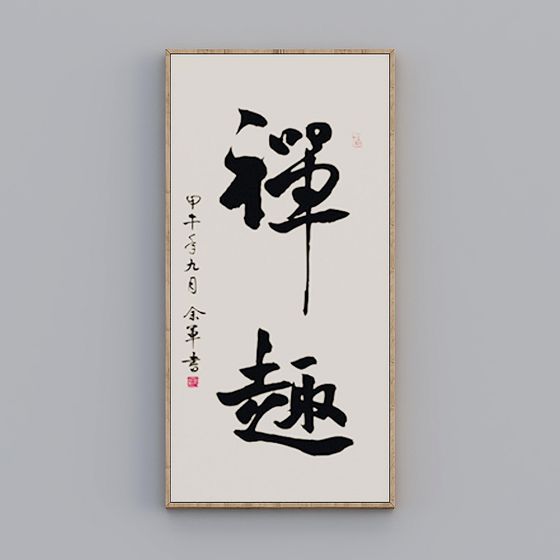 禪趣
甲午年九月 余軍書